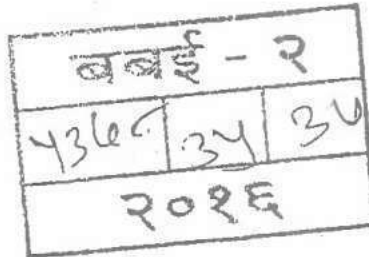 बबई - २
५३७८ ३५ ३७
२०१६